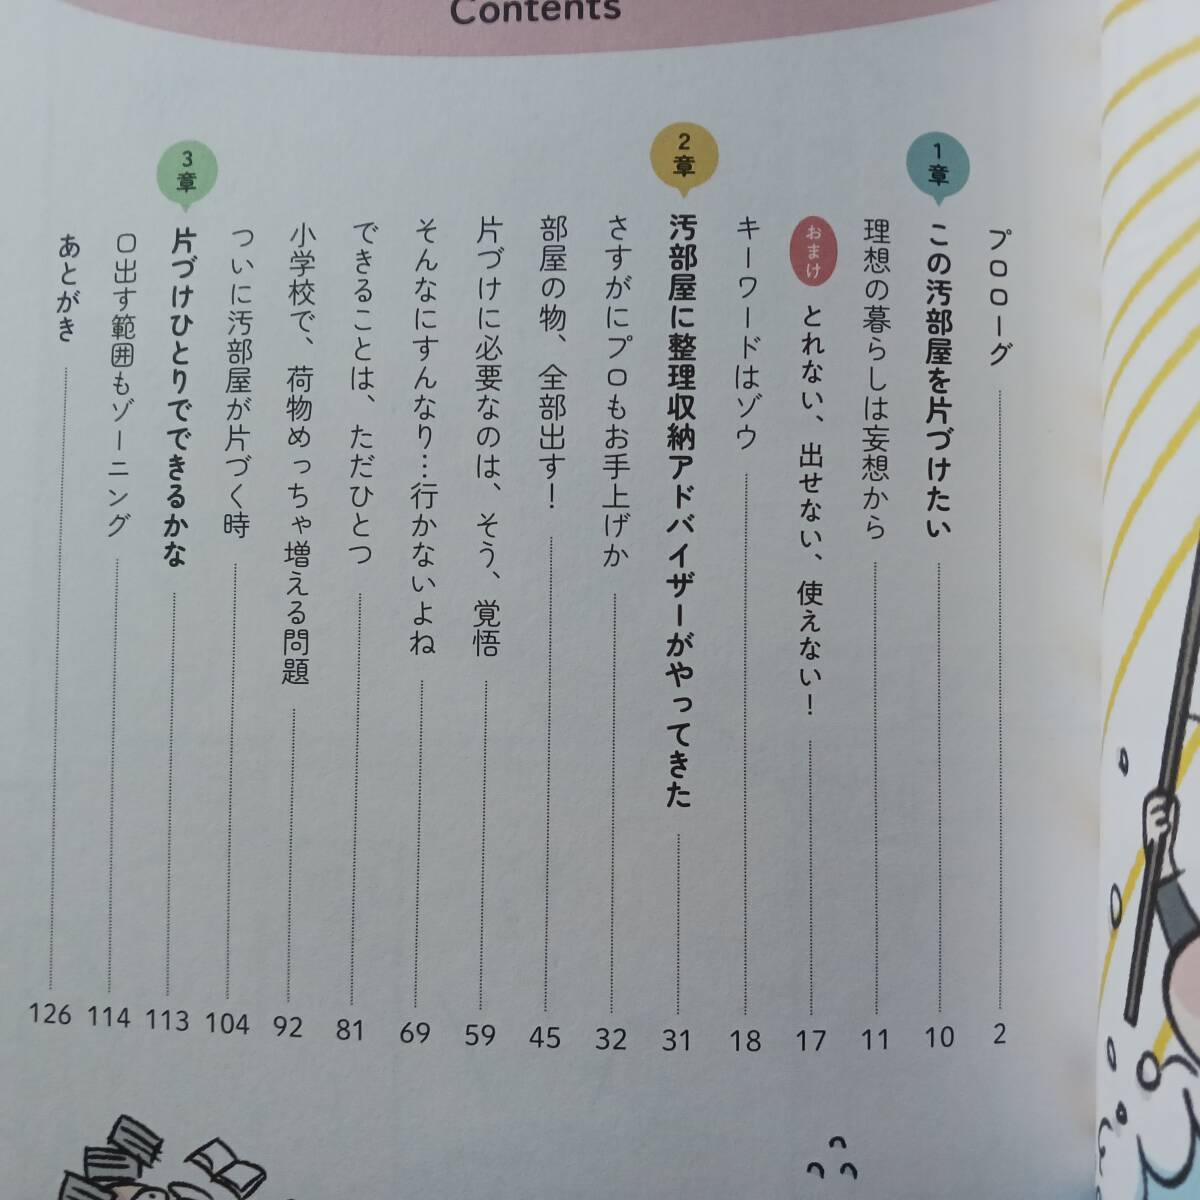 Contents
プロローグ 2
1章 この汚部屋を片づけたい 10
理想の暮らしは妄想から 11
おまけ とれない、出せない、使えない！ 17
キーワードはゾウ 18
2章 汚部屋に整理収納アドバイザーがやってきた 31
さすがにプロもお手上げか 32
部屋の物、全部出す！ 45
片づけに必要なのは、そう、覚悟 59
そんなにすんなり…行かないよね 69
できることは、ただひとつ 81
小学校で、荷物めっちゃ増える問題 92
ついに汚部屋が片づく時 104
3章 片づけひとりでできるかな 113
口出す範囲もゾーニング 114
あとがき 126